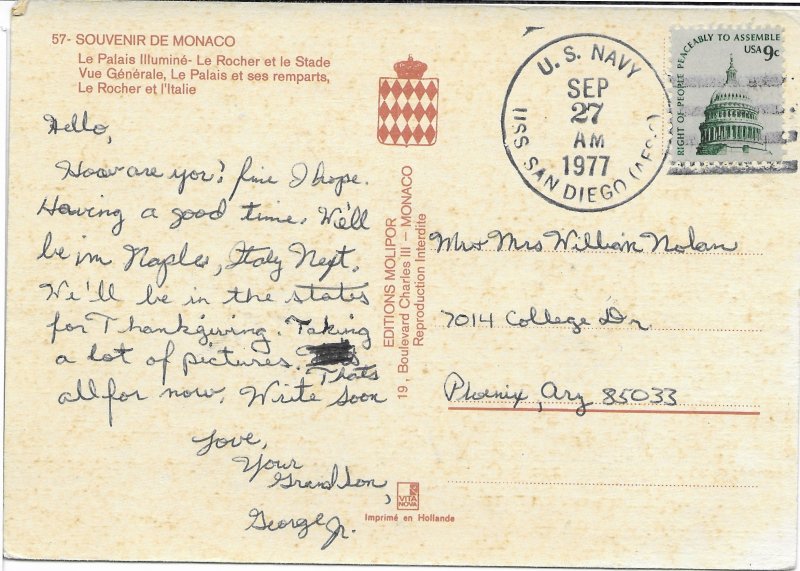 57- SOUVENIR DE MONACO
Le Palais Illuminé- Le Rocher et le Stade
Vue Générale, Le Palais et ses remparts,
Le Rocher et l'Italie
Hello,
How are you? fine I hope.
Having a good time. We'll
be in Naples, Italy Next.
We'll be in the states
for Thankgiving. Taking
a lot of pictures.
Thats
all for now. Write Soon
Love,
Your
Grandson,
George Jr.
EDITIONS MOLIPOR
19, Boulevard Charles III – MONACO
Reproduction Interdite
VITA
NOVA
Imprimé en Hollande
U. S. NAVY
SEP
27
AM
1977
USS SAN DIEGO (AFS-6)
RIGHT OF PEOPLE PEACEABLY TO ASSEMBLE
USA 9c
Mr + Mrs William Nolan
7014 College Dr
Phoenix, Ary 85033